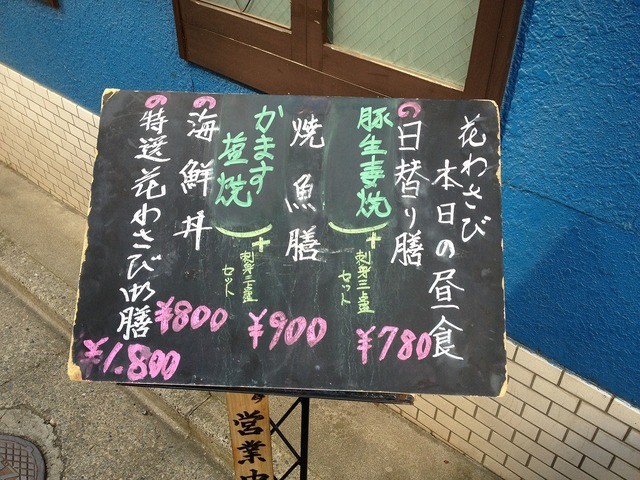 花わさび
本日の昼食
日替り膳
豚生姜焼
＋
刺身三点盛
セット
¥780
焼魚膳
かます
塩焼
＋
刺身三点盛
セット
¥900
海鮮丼
¥800
特選花わさび御膳
¥1.800
営業中